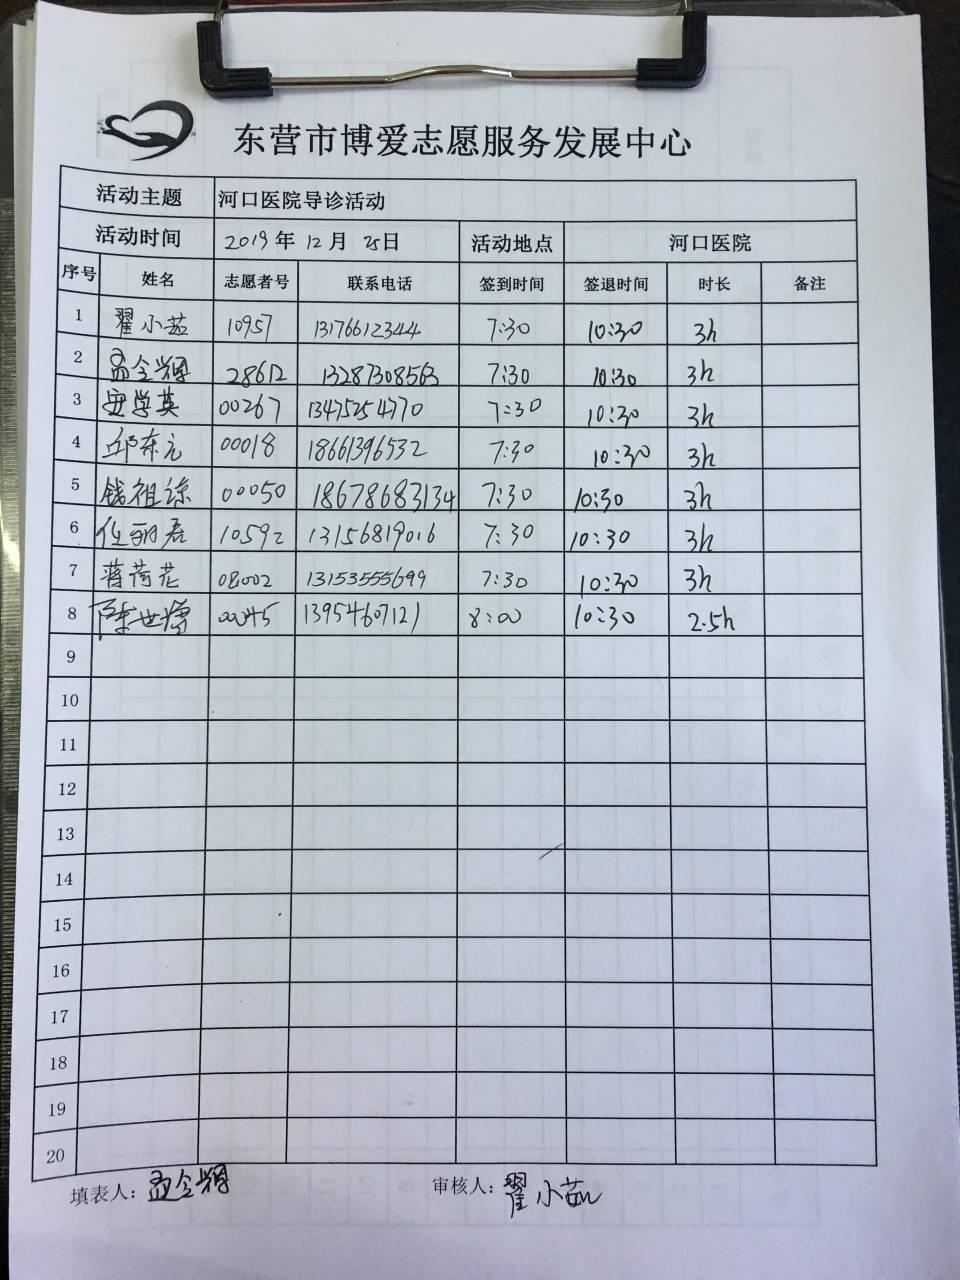 东营市博爱志愿服务发展中心
活动主题 河口医院导诊活动
活动时间 2019年 12月 25日 活动地点 河口医院
序号 姓名 志愿者号 联系电话 签到时间 签退时间 时长 备注
1 翟小茹 10957 13176612344 7:30 10:30 3h
2 孟令辉 28612 13287308563 7:30 10:30 3h
3 安学英 00267 13475254770 7:30 10:30 3h
4 邱东元 00018 18661396532 7:30 10:30 3h
5 钱祖 00050 18678683134 7:30 10:30 3h
6 任丽君 10592 13156819016 7:30 10:30 3h
7 蒋荷花 08002 13153555699 7:30 10:30 3h
8 陈世 00045 13954607121 8:00 10:30 2.5h
9
10
11
12
13
14
15
16
17
18
19
20
填表人：孟令辉 审核人：翟小茹